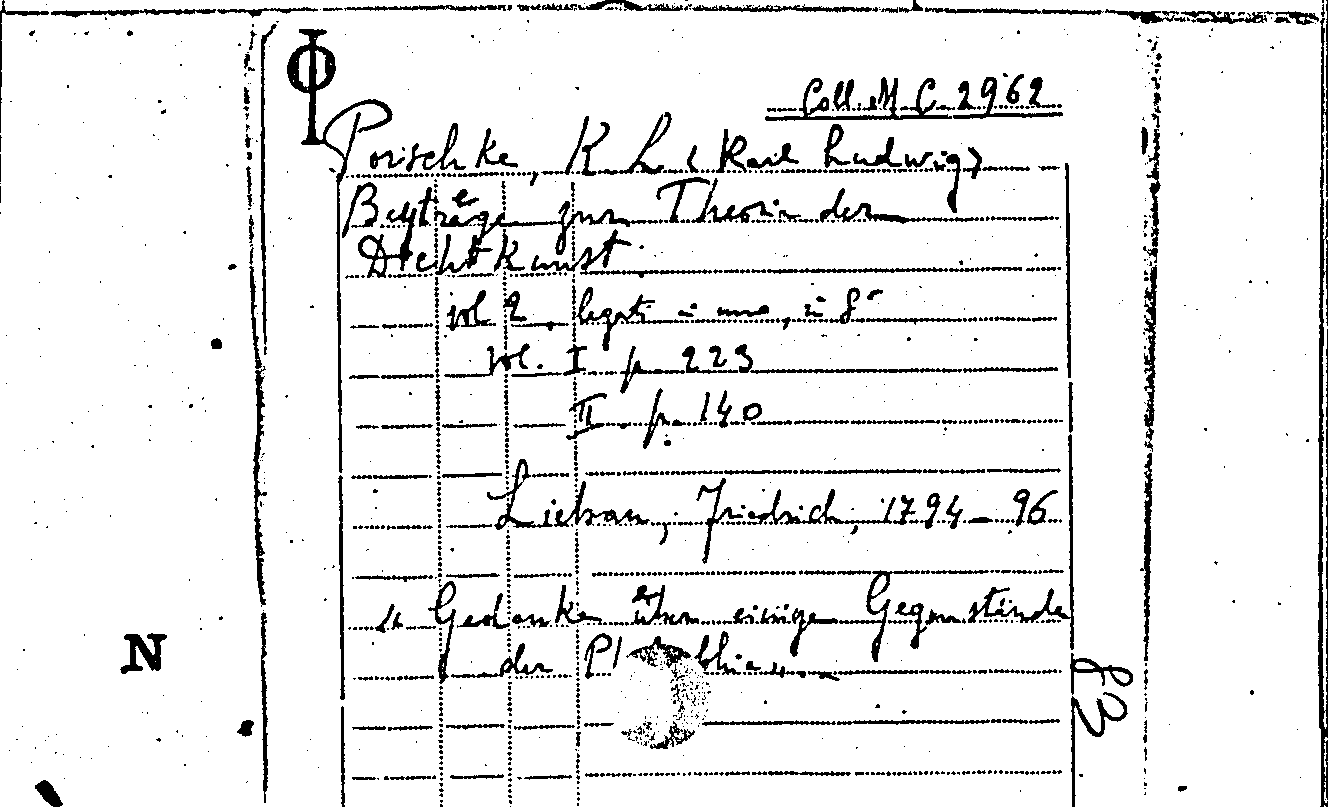 Φ
Coll. M C. 2962
Porschke, K L (Karl Ludwig)
Beyträge zur Theorie der
Dichtkunst.
vol 2, legati in uno, in 8°
vol. I p. 223
II. p. 140
Liebau, Friedrich, 1794-96
Gedanke über einige Gegenstände
der
83
N